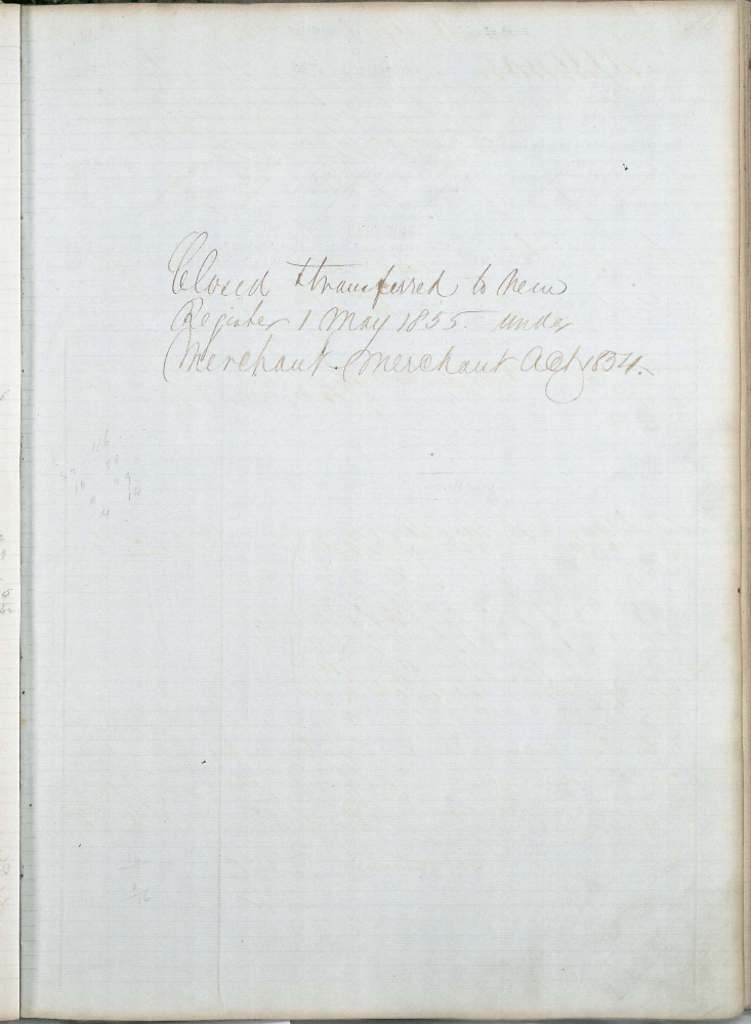 Closed & transferred to new
Register 1 May 1855. under
Merchant. Merchant Act 1854.